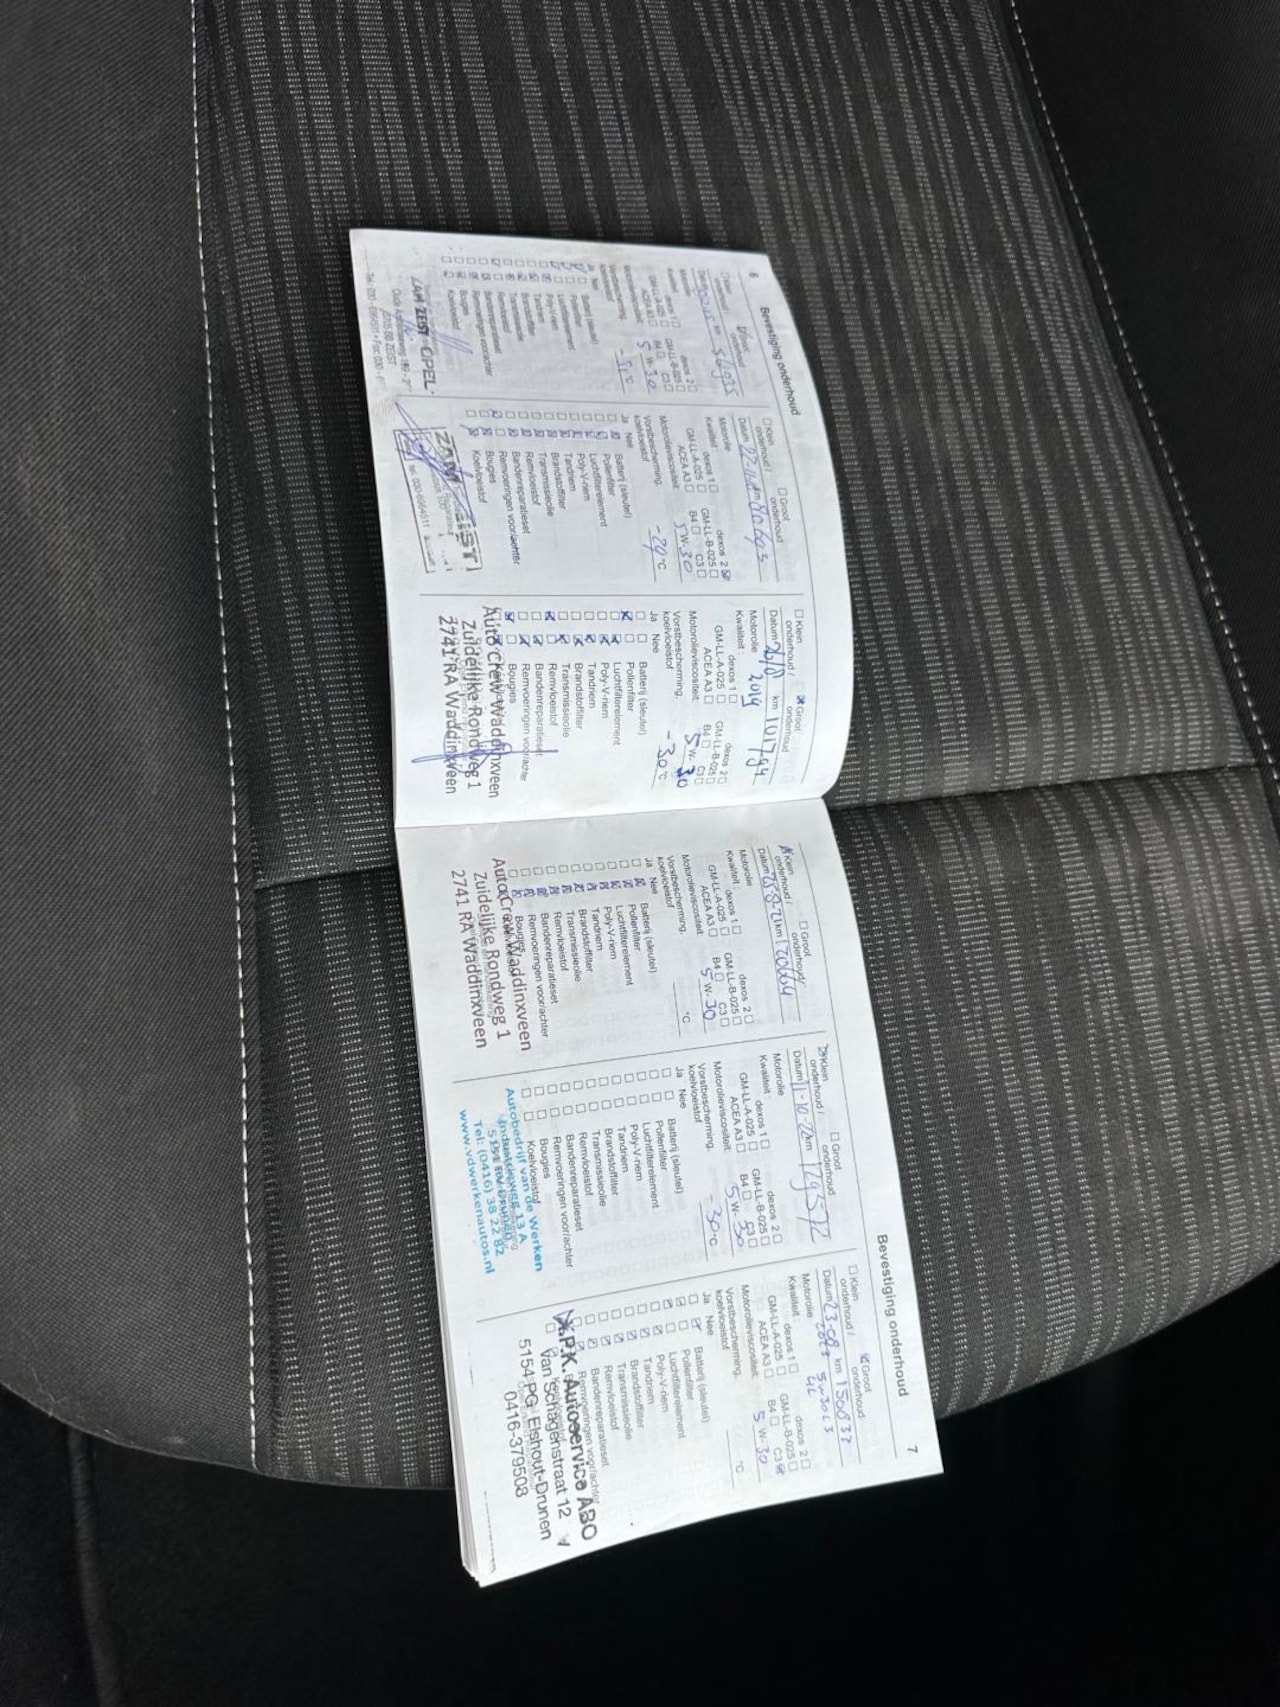 6
Bevestiging onderhoud
onderhoud /
Groot
onderhoud
km
Motorolie
Kwaliteit
dexos 1
dexos 2
GM-LL-A-025
GM-LL-B-025
ACEA A3
B4
C3
Motorolieviscositeit:
5 W- 30
Vorstbescherming,
koelvloeistof
°C
Ja Nee
Batterij (sleutel)
Pollenfilter
Luchtfilterelement
Poly-V-riem
Tandriem
Brandstoffilter
Transmissieolie
Remvloeistof
Bandenreparatieset
Remvoeringen voor/achter
Bougies
Koelvloeistof
ZAM ZEIST OPEL
Klein
onderhoud /
Groot
onderhoud
Datum
km
Motorolie
Kwaliteit
dexos 1
dexos 2
GM-LL-A-025
GM-LL-B-025
ACEA A3
B4
C3
Motorolieviscositeit:
5 W- 30
Vorstbescherming,
koelvloeistof
-29 °C
Ja Nee
Batterij (sleutel)
Pollenfilter
Luchtfilterelement
Poly-V-riem
Tandriem
Brandstoffilter
Transmissieolie
Remvloeistof
Bandenreparatieset
Remvoeringen voor/achter
Bougies
Koelvloeistof
ZAM ZEIST
Klein
onderhoud /
Groot
onderhoud
Datum
2019
km 101794
Motorolie
Kwaliteit :
dexos 1
dexos 2
GM-LL-A-025
GM-LL-B-025
ACEA A3
B4
C3
Motorolieviscositeit:
5 W- 30
Vorstbescherming,
koelvloeistof
-30 °C
Ja Nee
Batterij (sleutel)
Pollenfilter
Luchtfilterelement
Poly-V-riem
Tandriem
Brandstoffilter
Transmissieolie
Remvloeistof
Bandenreparatieset
Remvoeringen voor/achter
Bougies
Auto Crew Waddinxveen
Zuidelijke Rondweg 1
2741 RA Waddinxveen
Klein
onderhoud /
Groot
onderhoud
Datum
km
Motorolie
Kwaliteit :
dexos 1
dexos 2
GM-LL-A-025
GM-LL-B-025
ACEA A3
B4
C3
Motorolieviscositeit:
5 W- 30
Vorstbescherming,
koelvloeistof
°C
Ja Nee
Batterij (sleutel)
Pollenfilter
Luchtfilterelement
Poly-V-riem
Tandriem
Brandstoffilter
Transmissieolie
Remvloeistof
Bandenreparatieset
Remvoeringen voor/achter
Bougies
Auto Crew Waddinxveen
Zuidelijke Rondweg 1
2741 RA Waddinxveen
Klein
onderhoud /
Groot
onderhoud
Datum 11-10-22 km 129572
Motorolie
Kwaliteit :
dexos 1
dexos 2
GM-LL-A-025
GM-LL-B-025
ACEA A3
B4
C3
Motorolieviscositeit:
5 W- 30
Vorstbescherming,
koelvloeistof
-30 °C
Ja Nee
Batterij (sleutel)
Pollenfilter
Luchtfilterelement
Poly-V-riem
Tandriem
Brandstoffilter
Transmissieolie
Remvloeistof
Bandenreparatieset
Remvoeringen voor/achter
Bougies
Koelvloeistof
Autobedrijf van de Werken
Industrieweg 13 A
5151 Drunen
Tel: (0416) 38 22 82
www.vdwerkenautos.nl
Bevestiging onderhoud
7
Klein
onderhoud /
Groot
onderhoud
Datum 23-08 km 150837
2023 5W30 C3
4L
Motorolie
Kwaliteit
dexos 1
dexos 2
GM-LL-A-025
GM-LL-B-025
ACEA A3
B4
C3
Motorolieviscositeit:
5 W- 30
Vorstbescherming,
koelvloeistof
°C
Ja Nee
Batterij (sleutel)
Pollenfilter
Luchtfilterelement
Poly-V-riem
Tandriem
Brandstoffilter
Transmissieolie
Remvloeistof
Bandenreparatieset
Remvoeringen voor/achter
A.P.K. Autoservice ABO
Van Schagenstraat 12
5154 PG Elshout-Drunen
0416-379508